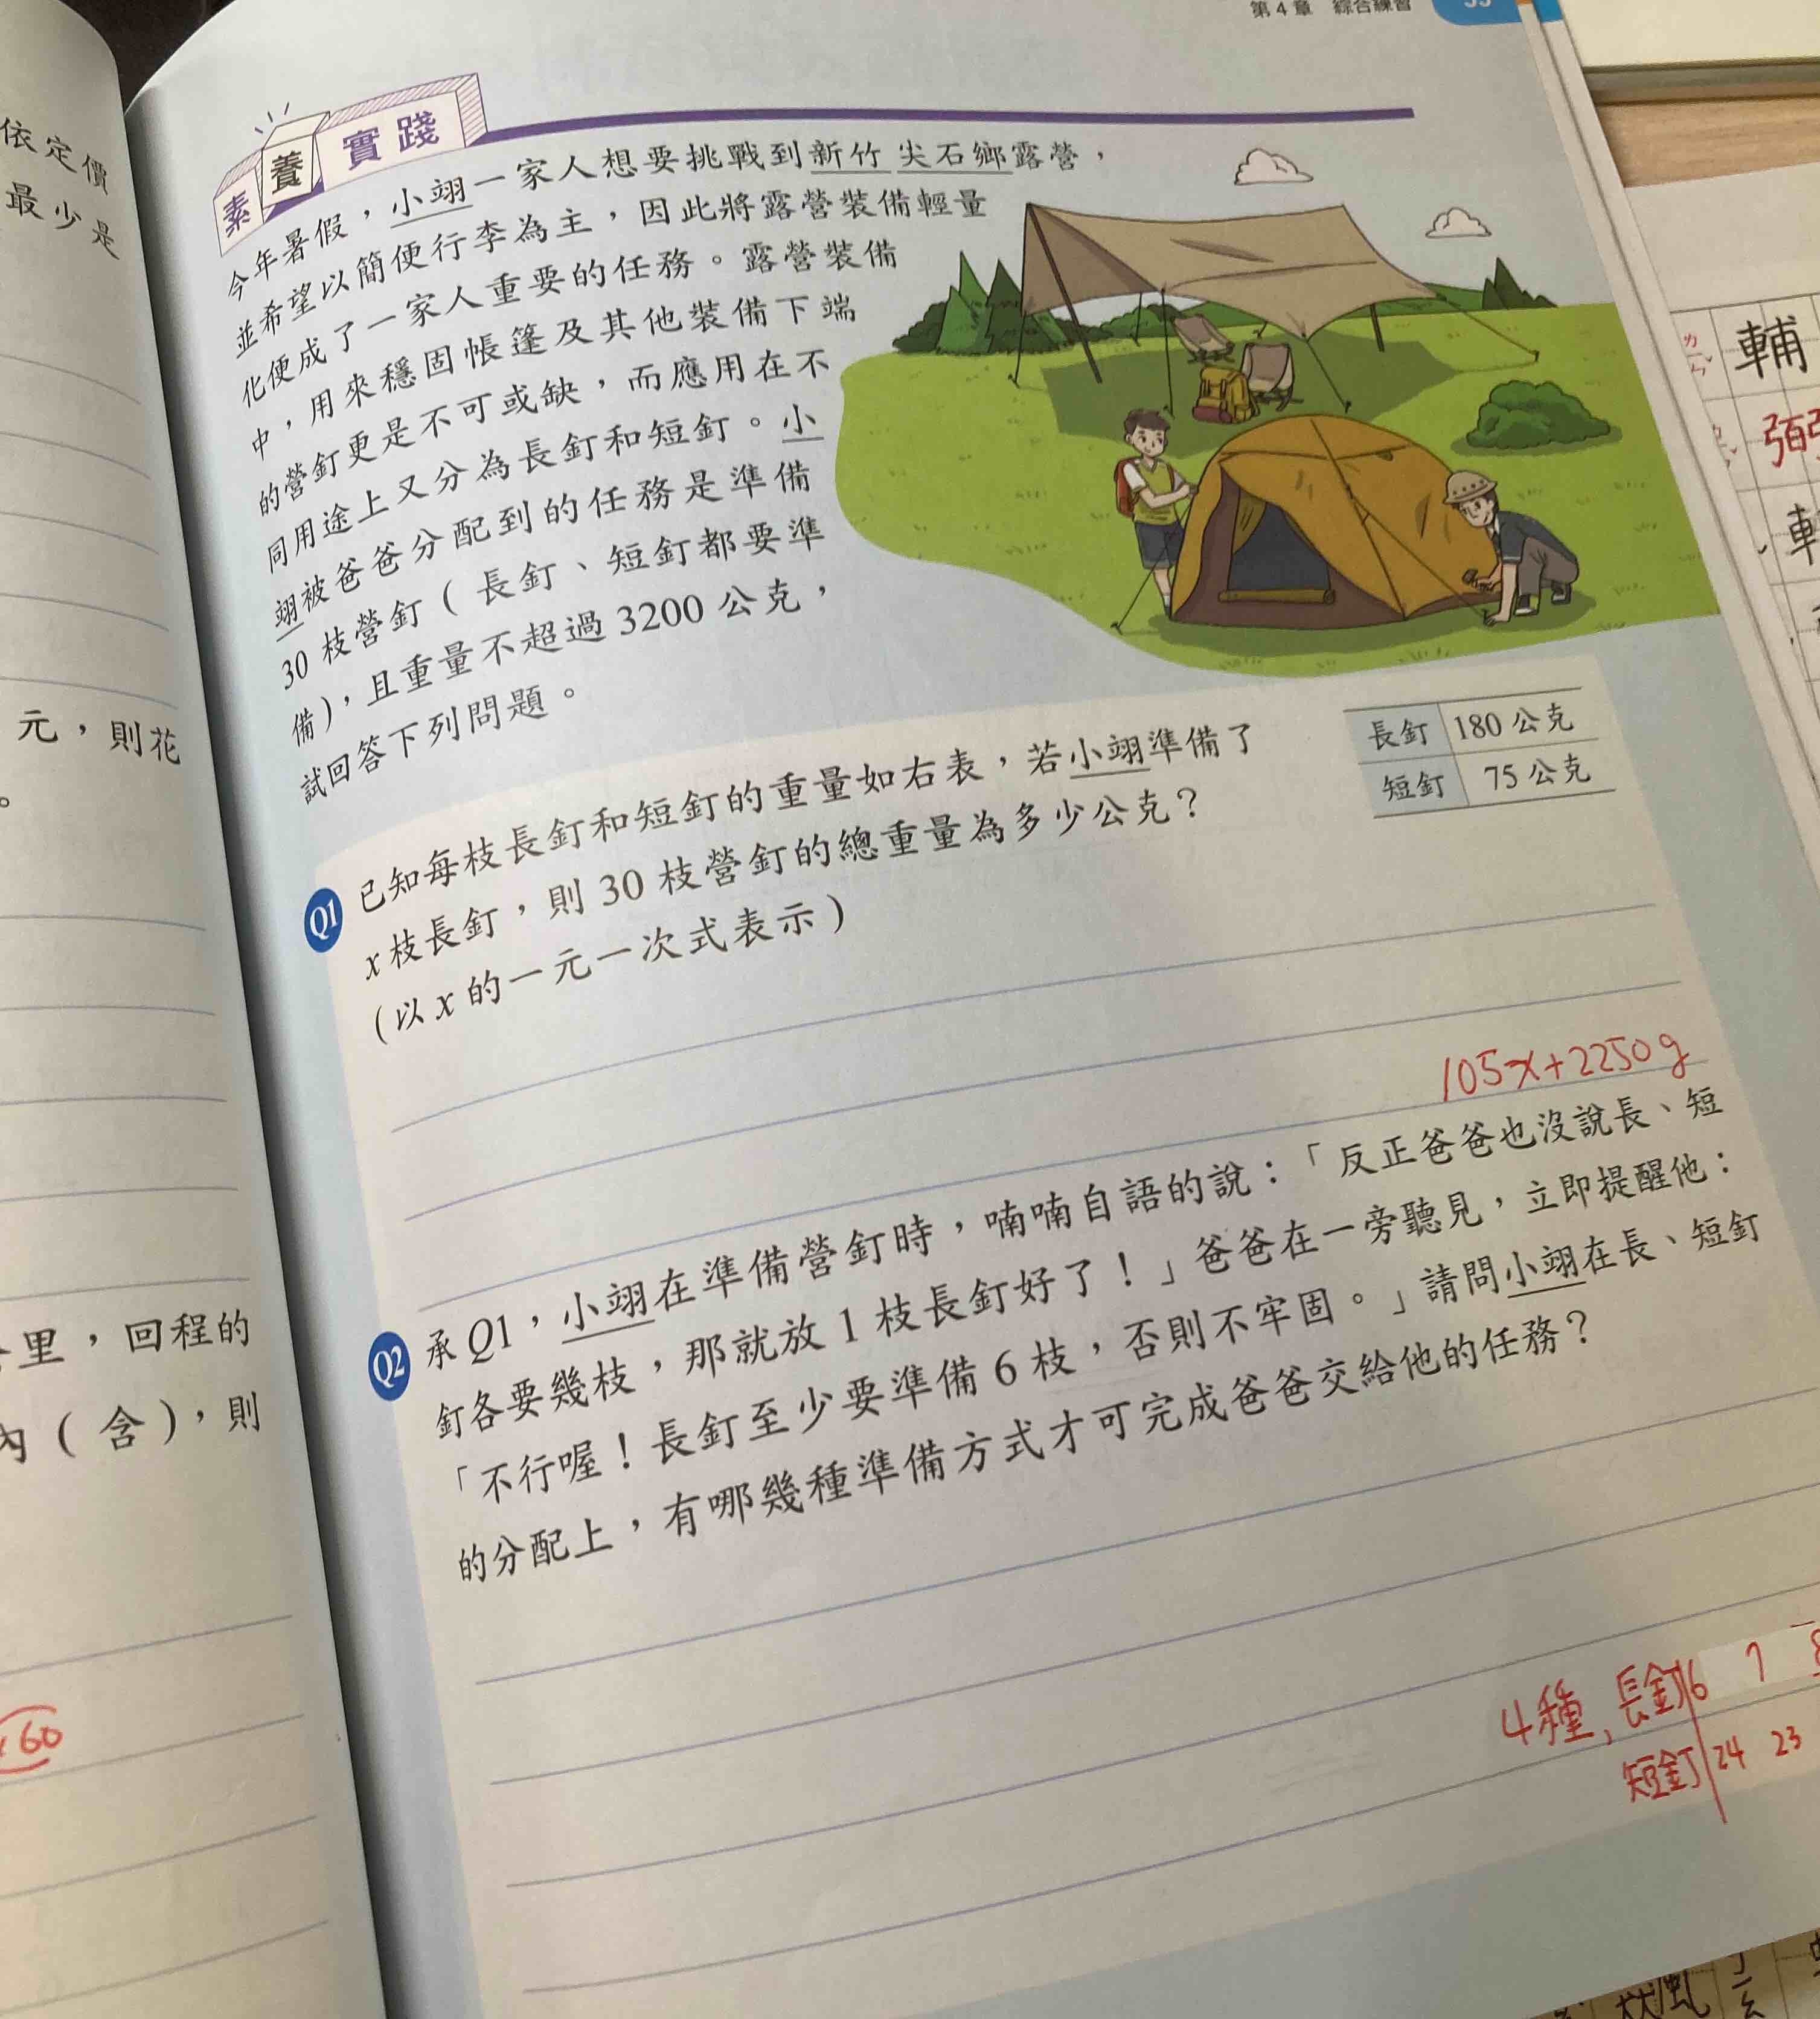 第4章 綜合練習
依定價
最少是
元，則花
。
里，回程的
內（含），則
60
素養實踐
今年暑假，小翊一家人想要挑戰到新竹 尖石鄉露營，
並希望以簡便行李為主，因此將露營裝備輕量
化便成了一家人重要的任務。露營裝備
中，用來穩固帳篷及其他裝備下端
的營釘更是不可或缺，而應用在不
同用途上又分為長釘和短釘。小
翊被爸爸分配到的任務是準備
30 枝營釘（長釘、短釘都要準
備），且重量不超過 3200 公克，
試回答下列問題。
Q1 已知每枝長釘和短釘的重量如右表，若小翊準備了
x 枝長釘，則 30 枝營釘的總重量為多少公克？
（以 x 的一元一次式表示）
長釘 180 公克
短釘 75 公克
105x+2250g
Q2 承 Q1，小翊在準備營釘時，喃喃自語的說：「反正爸爸也沒說長、短
釘各要幾枝，那就放 1 枝長釘好了！」爸爸在一旁聽見，立即提醒他：
「不行喔！長釘至少要準備 6 枝，否則不牢固。」請問小翊在長、短釘
的分配上，有哪幾種準備方式才可完成爸爸交給他的任務？
4種，長釘 6 7 8
短釘 24 23
輔